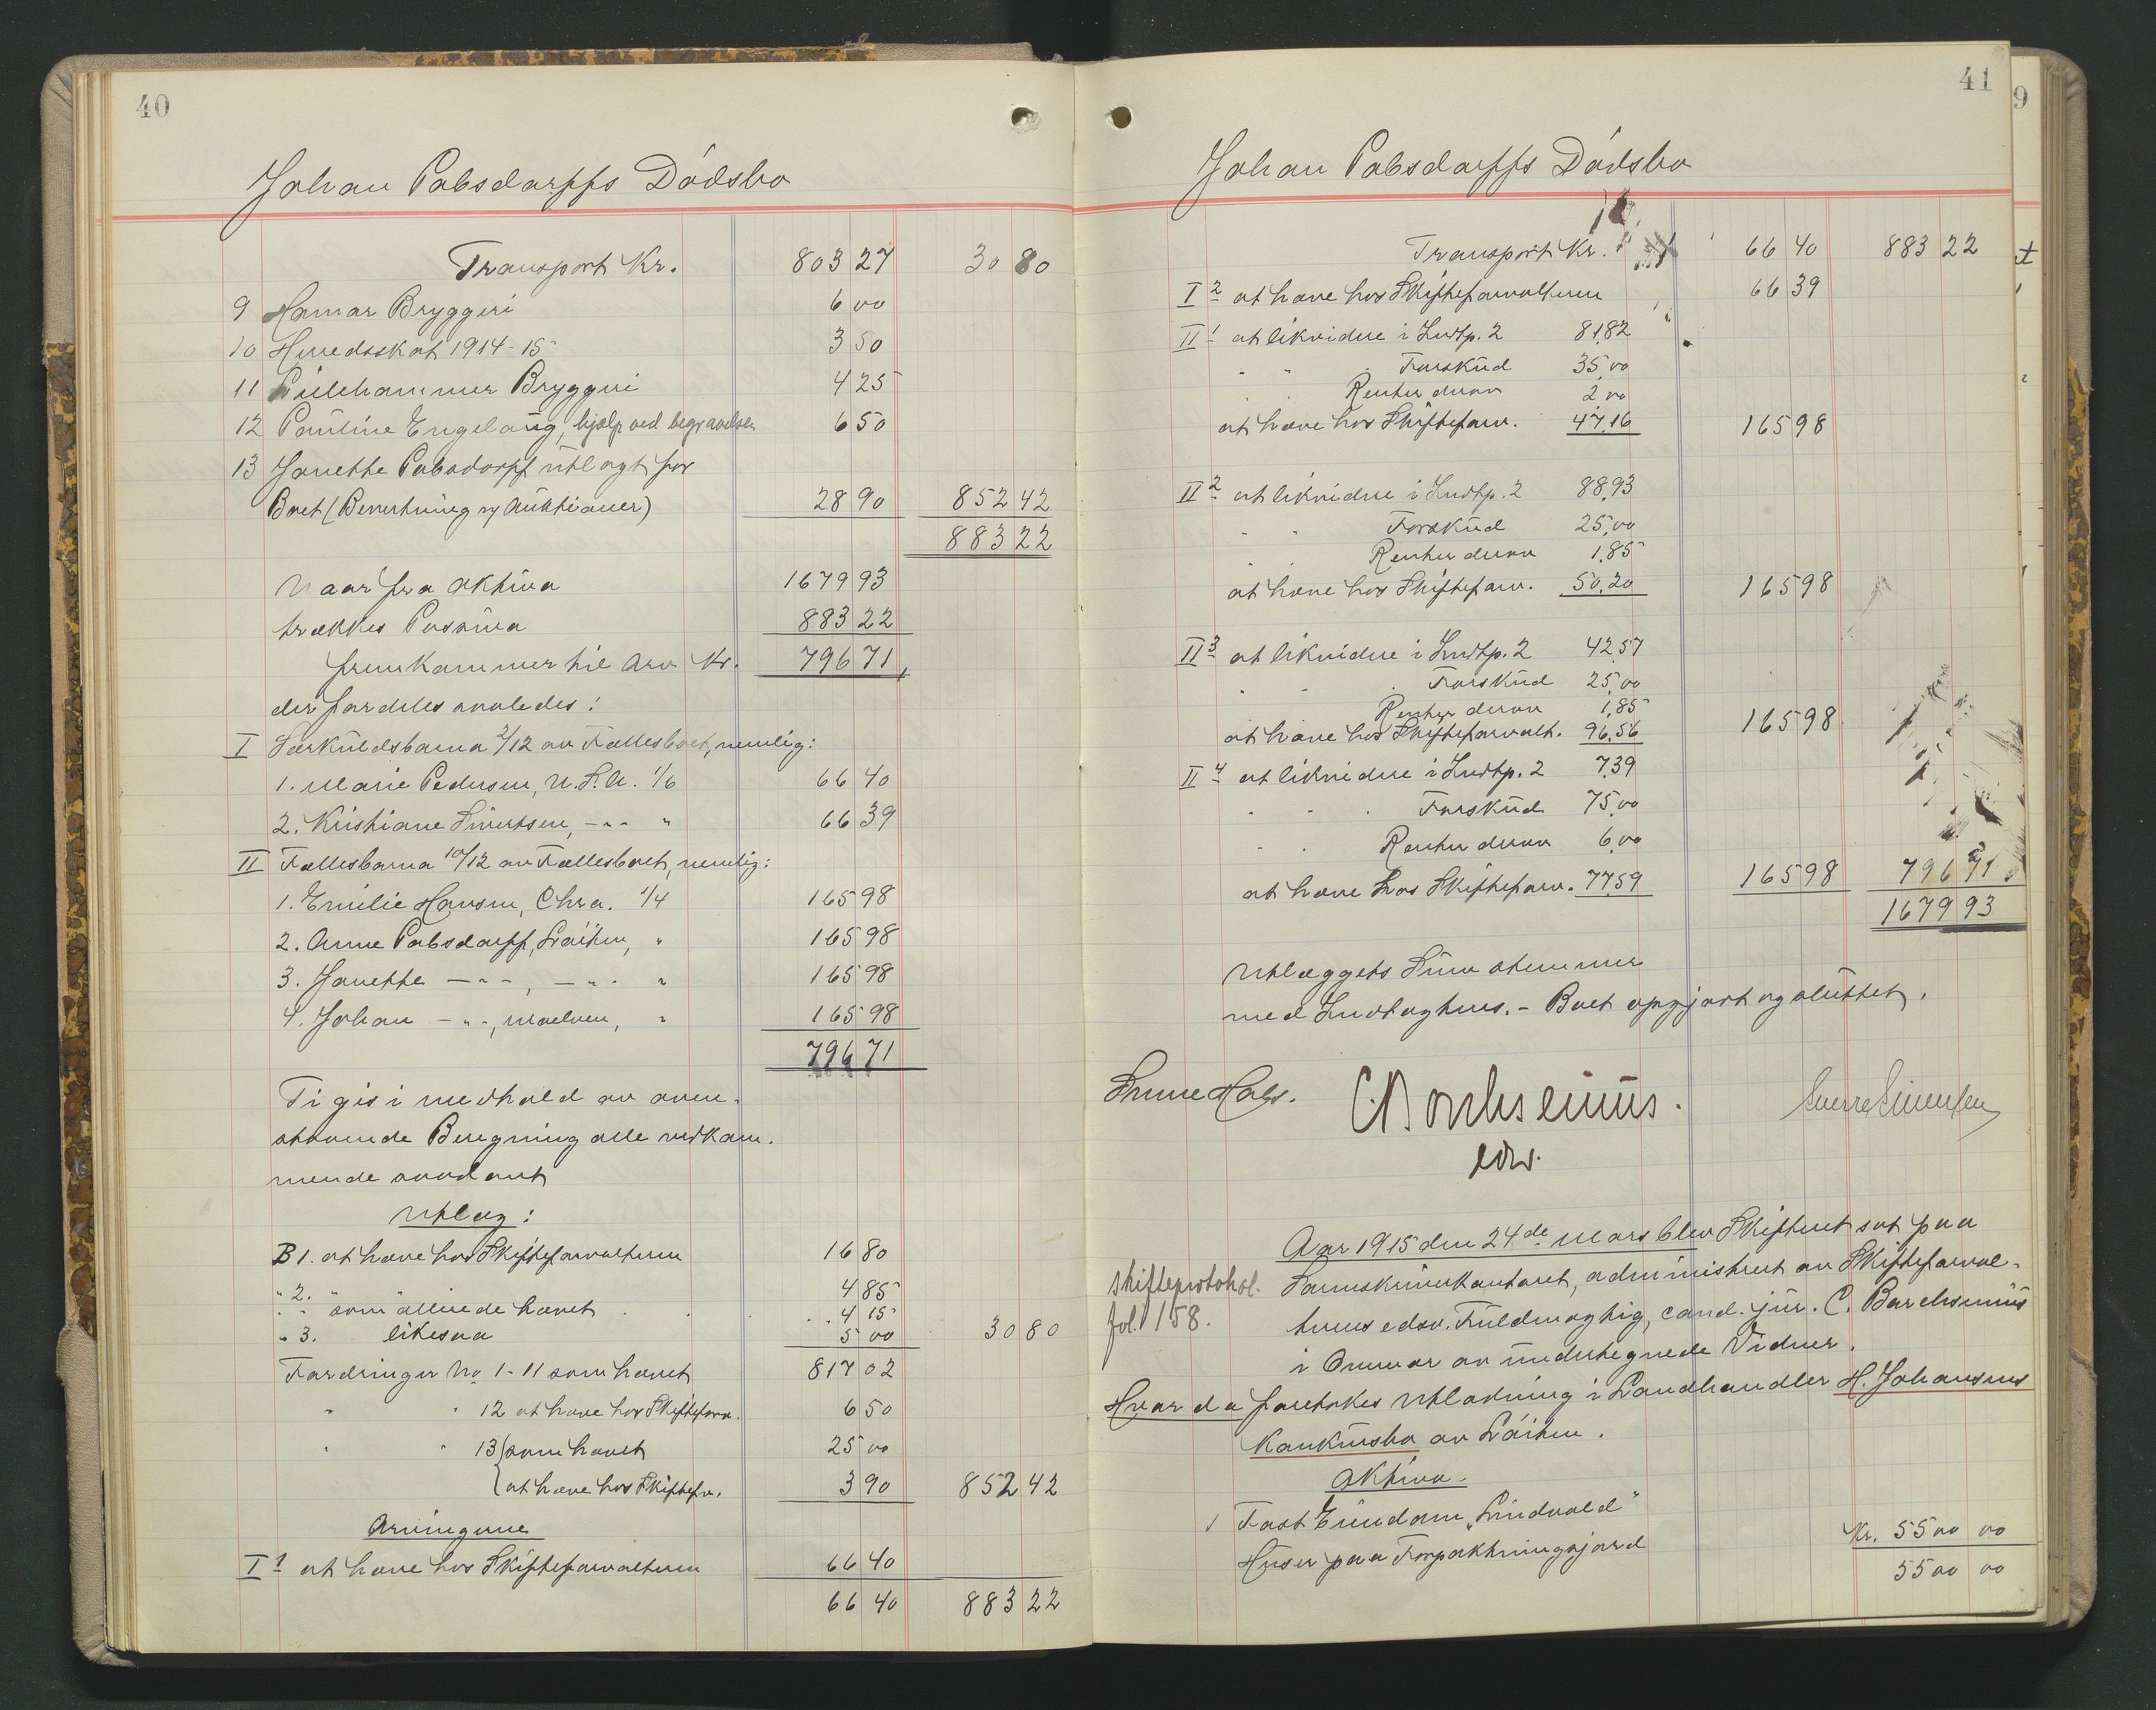 40
Johan Pabsdorffs Dødsbo
Transport Kr. 803 27 30 80
9 Hamar Bryggeri 6 00
10 Herredsskat 1914-15 3 50
11 Lillehammer Bryggeri 4 25
12 Pauline Engelaug, hjælp ved begravelsen 6 50
13 Janette Pabsdorff utlagt for
Boet (Bevertning og Auktioner) 28 90 852 42
883 22
Naar fra Aktiva 1679 93
trækkes Passiva 883 22
fremkommer til Arv Kr. 796 71
der fordeles saaledes:
I Særkuldsbarna 2/12 av Fællesboet, nemlig:
1. Marie Pedersen, N.S.A. 1/6 66 40
2. Kristiane Sivertsen, -"- " 66 39
II Fællesbarna 10/12 av Fællesboet, nemlig:
1. Emilie Hansen, Chra. 1/4 165 98
2. Anne Pabsdorff, Løiten, " 165 98
3. Janette -"-, -"- " 165 98
4. Johan -"-, Maelven, " 165 98
796 71
Ti gis i medhold av oven-
staaende Beregning alle vedkom-
mende saadant
Utlæg:
B 1. at hæve hos Skifteforvalteren 16 80
" 2. " 4 85
" " som allerede hævet 4 15
" 3. likesaa 5 00 30 80
Fordringer No 1-11 som hævet 817 02
" " 12 at hæve hos Skifteforv. 6 50
" " 13 som hævet 25 00
at hæve hos Skiftefv. 3 90 852 42
Arvingerne
I 1 at hæve hos Skifteforvalteren 66 40
66 40 883 22
41
Johan Pabsdorffs Dødsbo
Transport Kr. 66 40 883 22
I 2 at hæve hos Skifteforvalteren 66 39
II 1 at likvidere i Indtp. 2 81,82
" " Forskud 35,00
" " Renter derav 2,00
at hæve hos Skifteforv. 47,16 165 98
II 2 at likvidere i Indtp. 2 88,93
" " Forskud 25,00
" " Renter derav 1,85
at hæve hos Skifteforv. 50,20 165 98
II 3 at likvidere i Indtp. 2 42,57
" " Forskud 25,00
Renter derav 1,85
at hæve hos Skifteforvalt. 96,56 165 98
II 4 at likvidere i Indtp. 2 7,39
" " Forskud 75,00
" " Renter derav 6,00
at hæve hos Skifteforv. 77,59 165 98 796 71
1679 93
Utlæggets Sum stemmer
med Indtægtens. - Boet opgjort og sluttet.
C. Borchsenius.
edsv.
Sverre Simensen
Aar 1915 den 24de Mars blev Skifteret sat paa
Skifteprotokol. Sorenskriverkontoret, administrert av Skifteforval-
fol. 158. terens edsv. Fuldmægtig, cand. jur. C. Borchsenius
i Overvær av undertegnede Vidner.
Hvor da foretokes Utlodning i Landhandler H. Johansens
Konkursbo av Løiten.
Aktiva.
1 Fast Eiendom "Lindvold"
Huser paa Forpaktningsjord Kr. 5500 00
5500 00